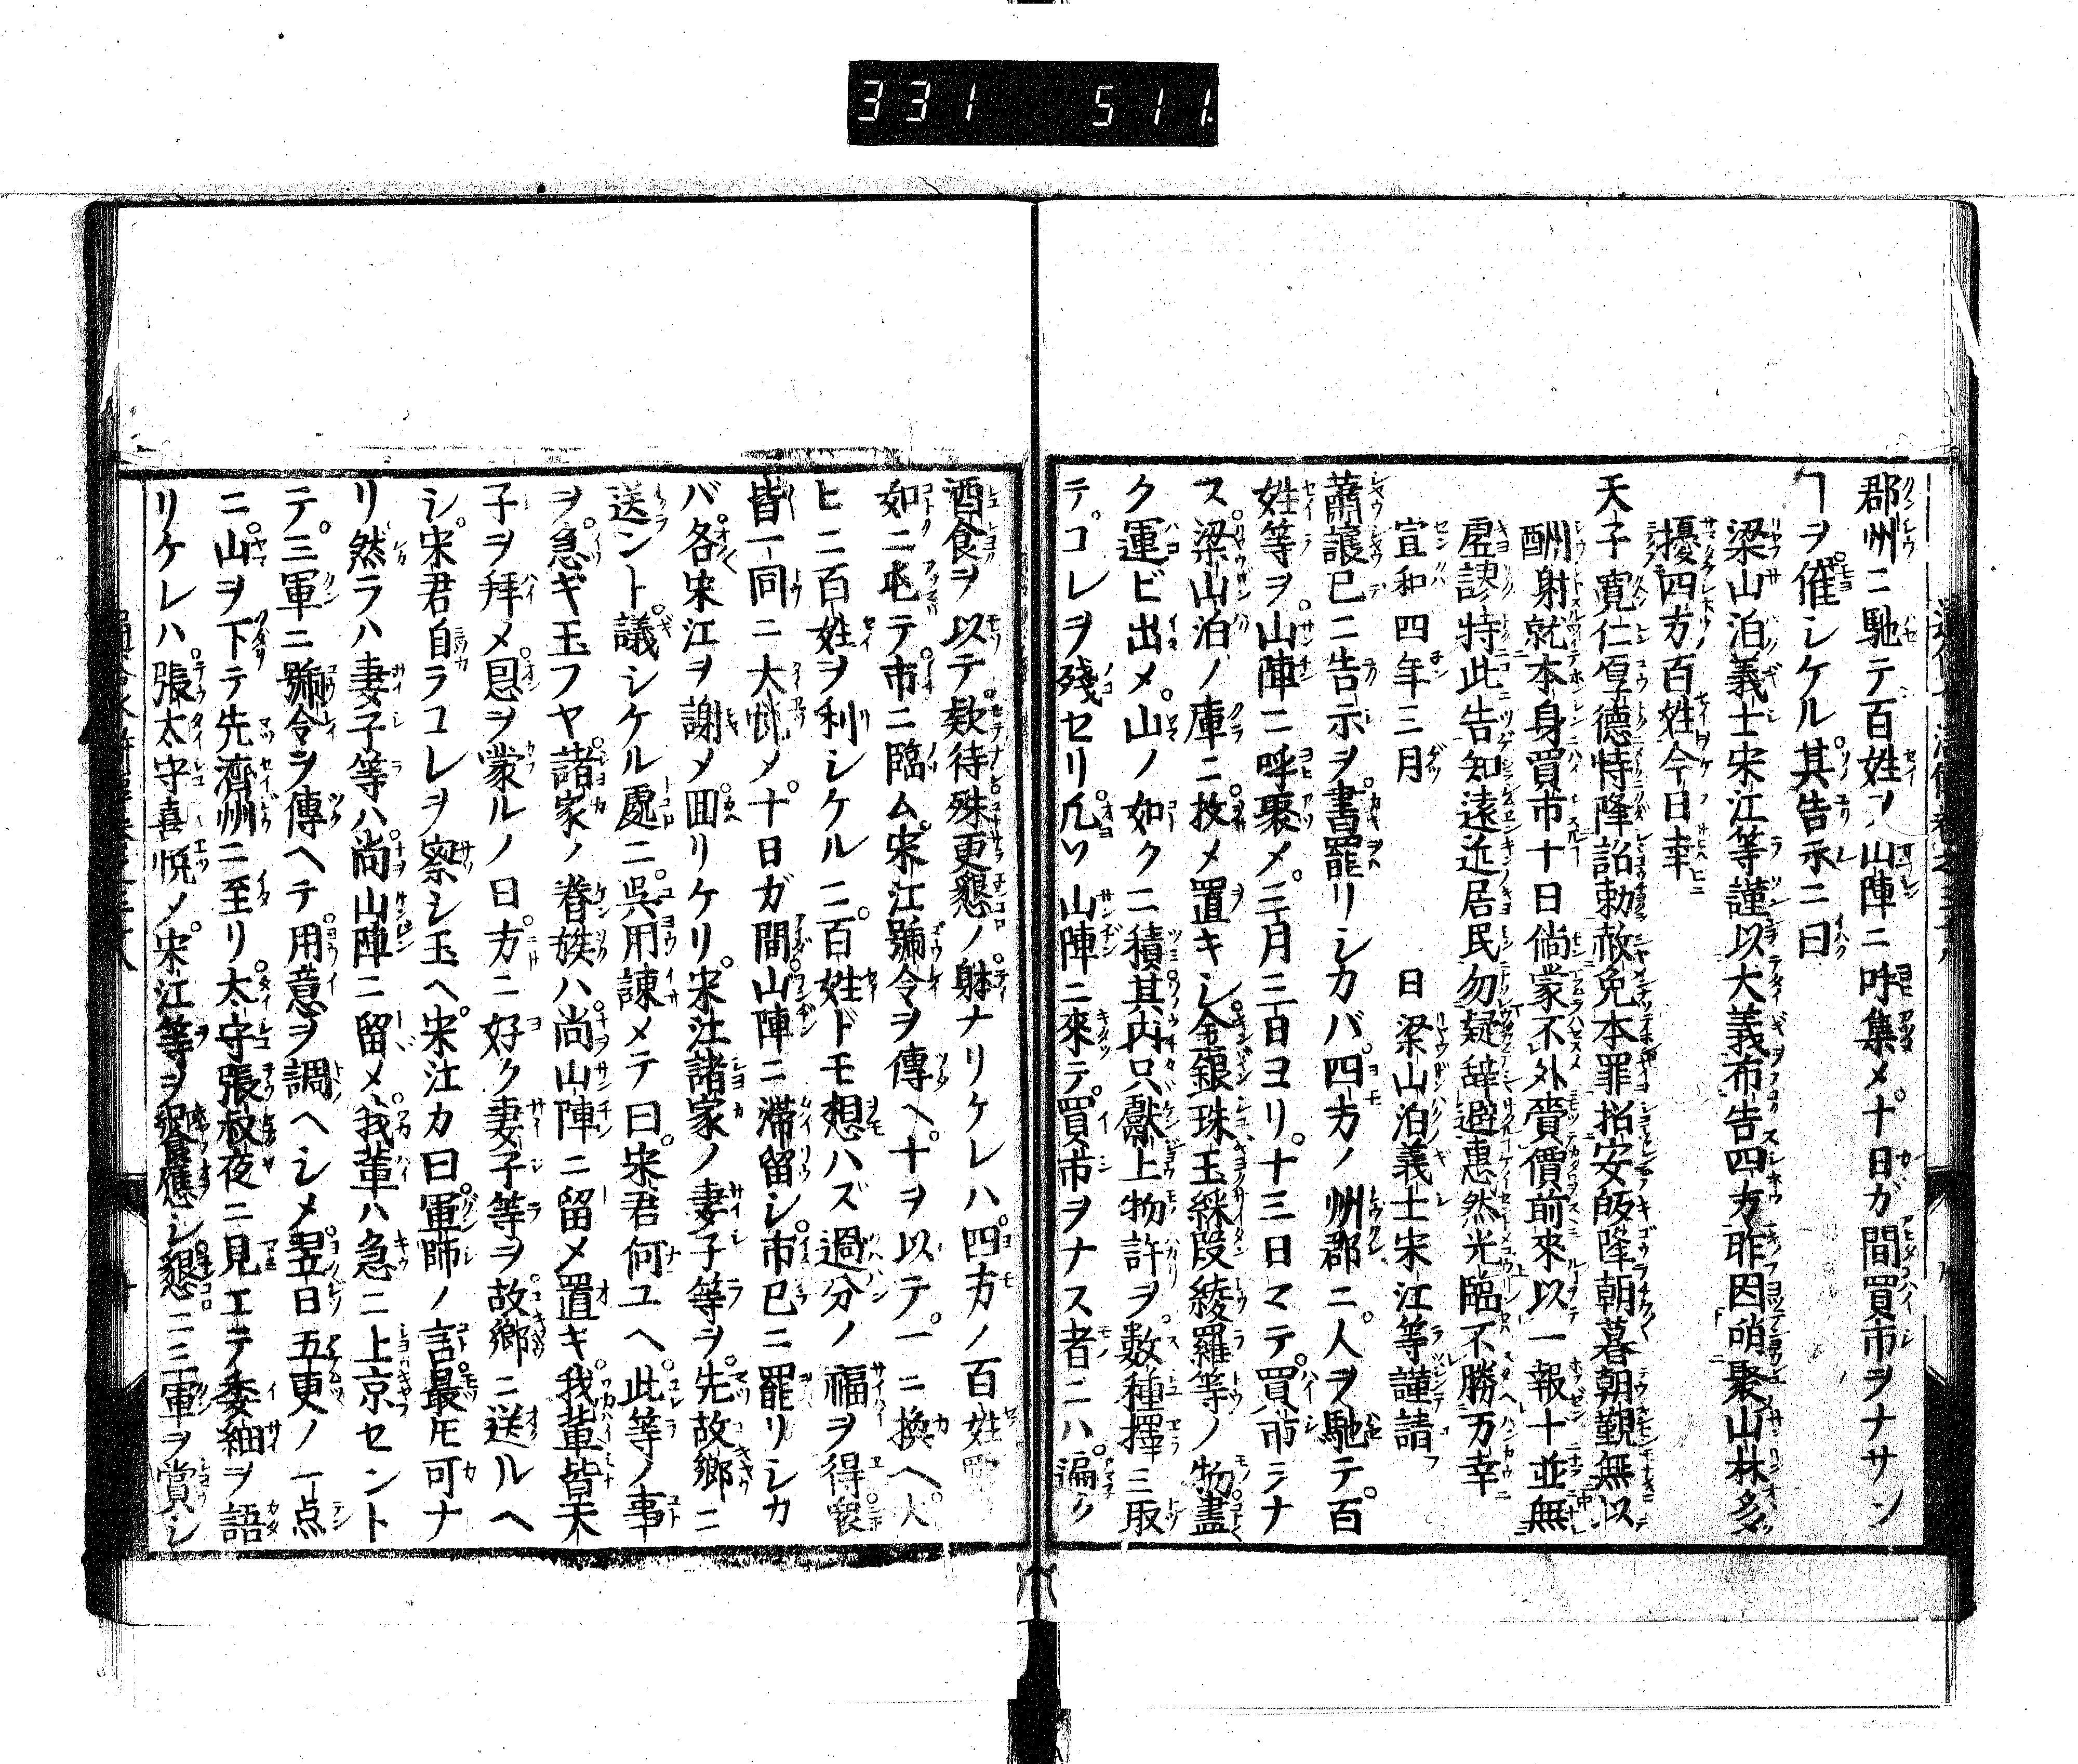 331 511
郡州ニ馳テ百姓ヲ山陣ニ呼集メ十日ガ間買市ヲナサン
ヿヲ催シケル其告示ニ曰
梁山泊義士宋江等謹以大義布告四方昨因哨聚山林多
擾四方百姓今日幸
天子寛仁厚德特降詔勅赦免本罪招安皈降朝暮朝覲無以
酬射就本身買市十日倘蒙不外賷價前來以一報十並無
虗謬特此告知遠近居民勿疑辞避惠然光臨不勝万幸
宣和四年三月　日梁山泊義士宋江等謹請
蕭譲已ニ告示ヲ書罷リシカバ四方ノ州郡ニ人ヲ馳テ百
姓等ヲ山陣ニ呼聚メ三月三日ヨリ十三日マテ買市ラナ
ス梁山泊ノ庫ニ收メ置キシ金銀珠玉綵段綾羅等ノ物盡
ク運ビ出メ山ノ如クニ積其内只獻上物許ヲ数種擇ミ取
テコレヲ殘セリ凡ソ山陣ニ來テ買市ヲナス者ニハ遍ク
酒食ヲ以テ欵待殊更懇ノ躰ナリケレハ四方ノ百姓
如ニ屯テ市ニ臨ム宋江號令ヲ傳ヘ十ヲ以テ一ニ換ヘ人
ヒニ百姓ヲ利シケル二百姓ドモ想ハズ過分ノ福ヲ得
皆一同ニ大悦メ十日ガ間山陣ニ滞留シ市已ニ罷リシカ
バ各宋江ヲ謝メ囬リケリ宋江諸家ノ妻子等ヲ先故郷ニ
送ント議シケル處ニ呉用諌メテ曰宋君何ユヘ此等ノ事
ヲ急ギ玉フヤ諸家ノ眷族ハ尚山陣ニ留メ置キ我輩皆天
子ヲ拜メ恩ヲ蒙ルノ日方ニ好ク妻子等ヲ故郷ニ送ルヘ
シ宋君自ラコレヲ察シ玉ヘ宋江カ曰軍師ノ言最𪜈可ナ
リ然ラハ妻子等ハ尚山陣ニ留メ我輩ハ急ニ上京セント
テ三軍ニ號令ヲ傳ヘテ用意ヲ調ヘシメ翌日五更ノ一点
ニ山ヲ下テ先濟州ニ至リ太守張叔夜ニ見エテ委細ヲ語
リケレハ張太守喜悦メ宋江等ヲ饗應シ懇ニ三軍ヲ賞シ